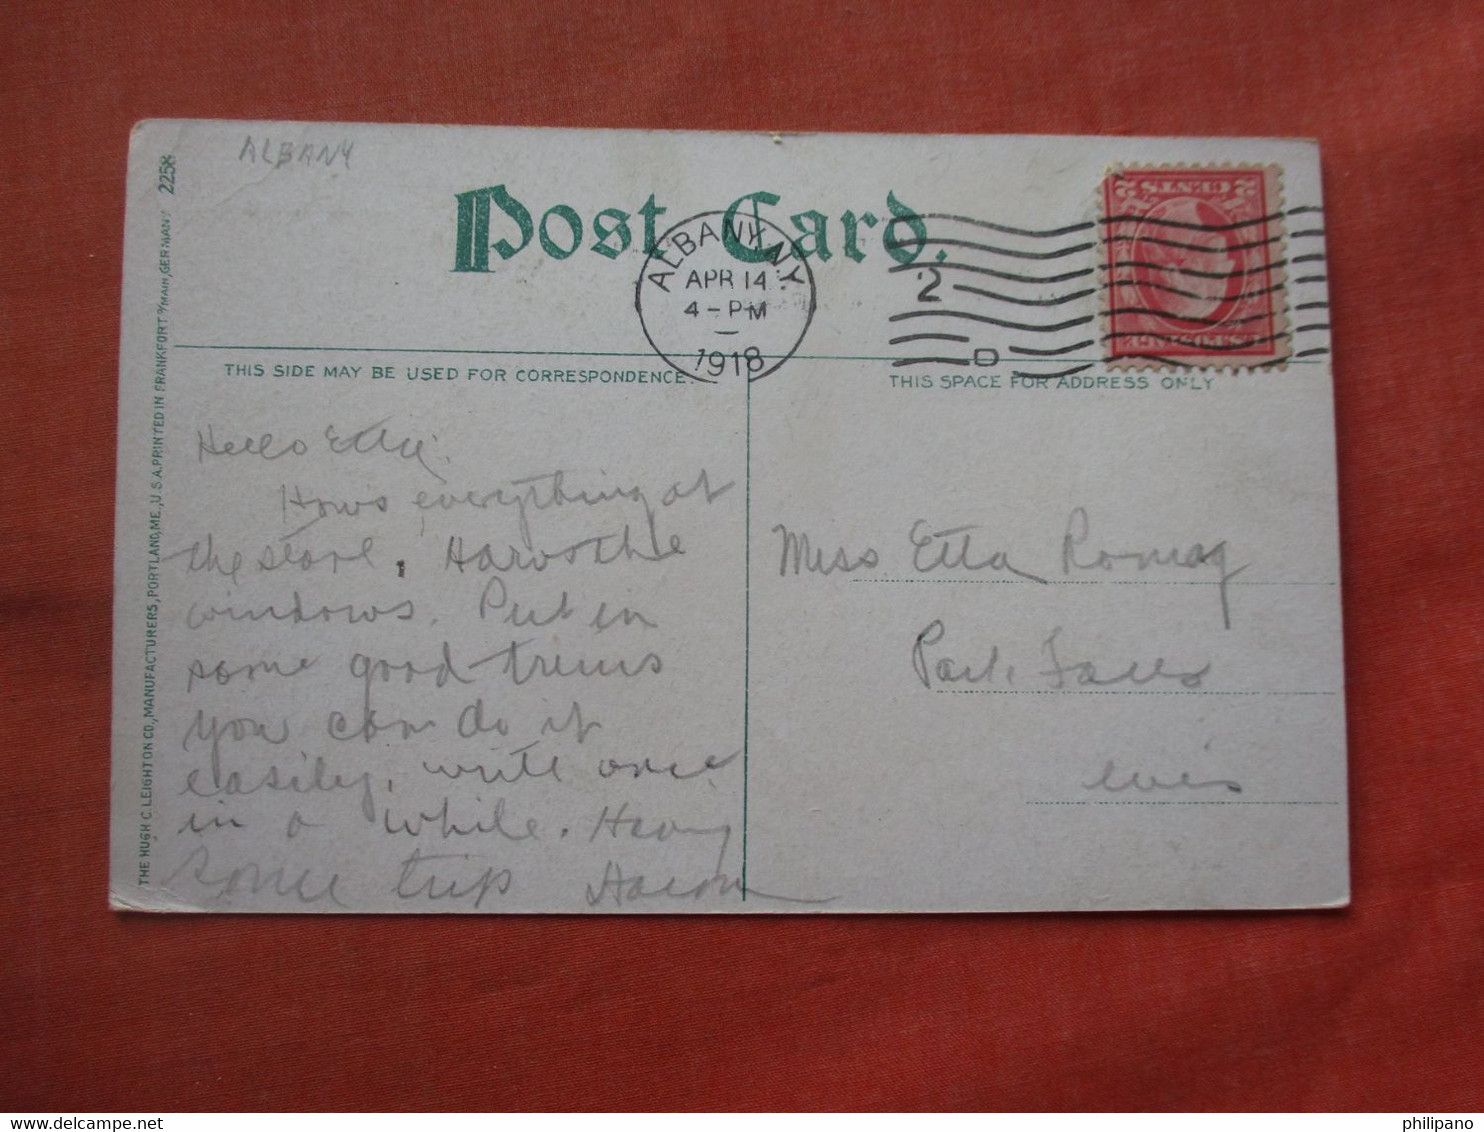 ALBANY
2258
Post Card.
ALBANY, N.Y.
APR 14
4 - PM
1918
2
D
2 CENTS 2
THIS SIDE MAY BE USED FOR CORRESPONDENCE.
THIS SPACE FOR ADDRESS ONLY
THE HUGH C. LEIGHTON CO., MANUFACTURERS, PORTLAND, ME., U.S.A. PRINTED IN FRANKFORT o/MAIN, GERMANY
Hello Etta:
Hows everything at
the store, Hows the
windows. Put in
some good trims
you can do it
easily, write once
in a while. Having
some trip
Miss Etta
Park Falls
Wis
philipano
delcampe.net